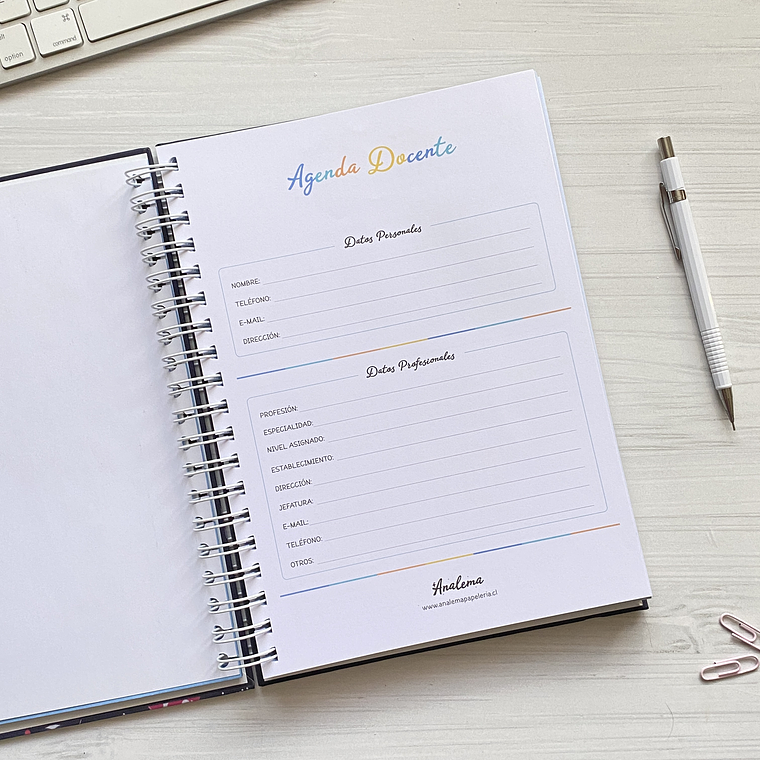 option
⌘
command
Agenda Docente
Datos Personales
NOMBRE:
TELÉFONO:
E-MAIL:
DIRECCIÓN:
Datos Profesionales
PROFESIÓN:
ESPECIALIDAD:
NIVEL ASIGNADO:
ESTABLECIMIENTO:
DIRECCIÓN:
JEFATURA:
E-MAIL:
TELÉFONO:
OTROS:
Analema
www.analemapapeleria.cl